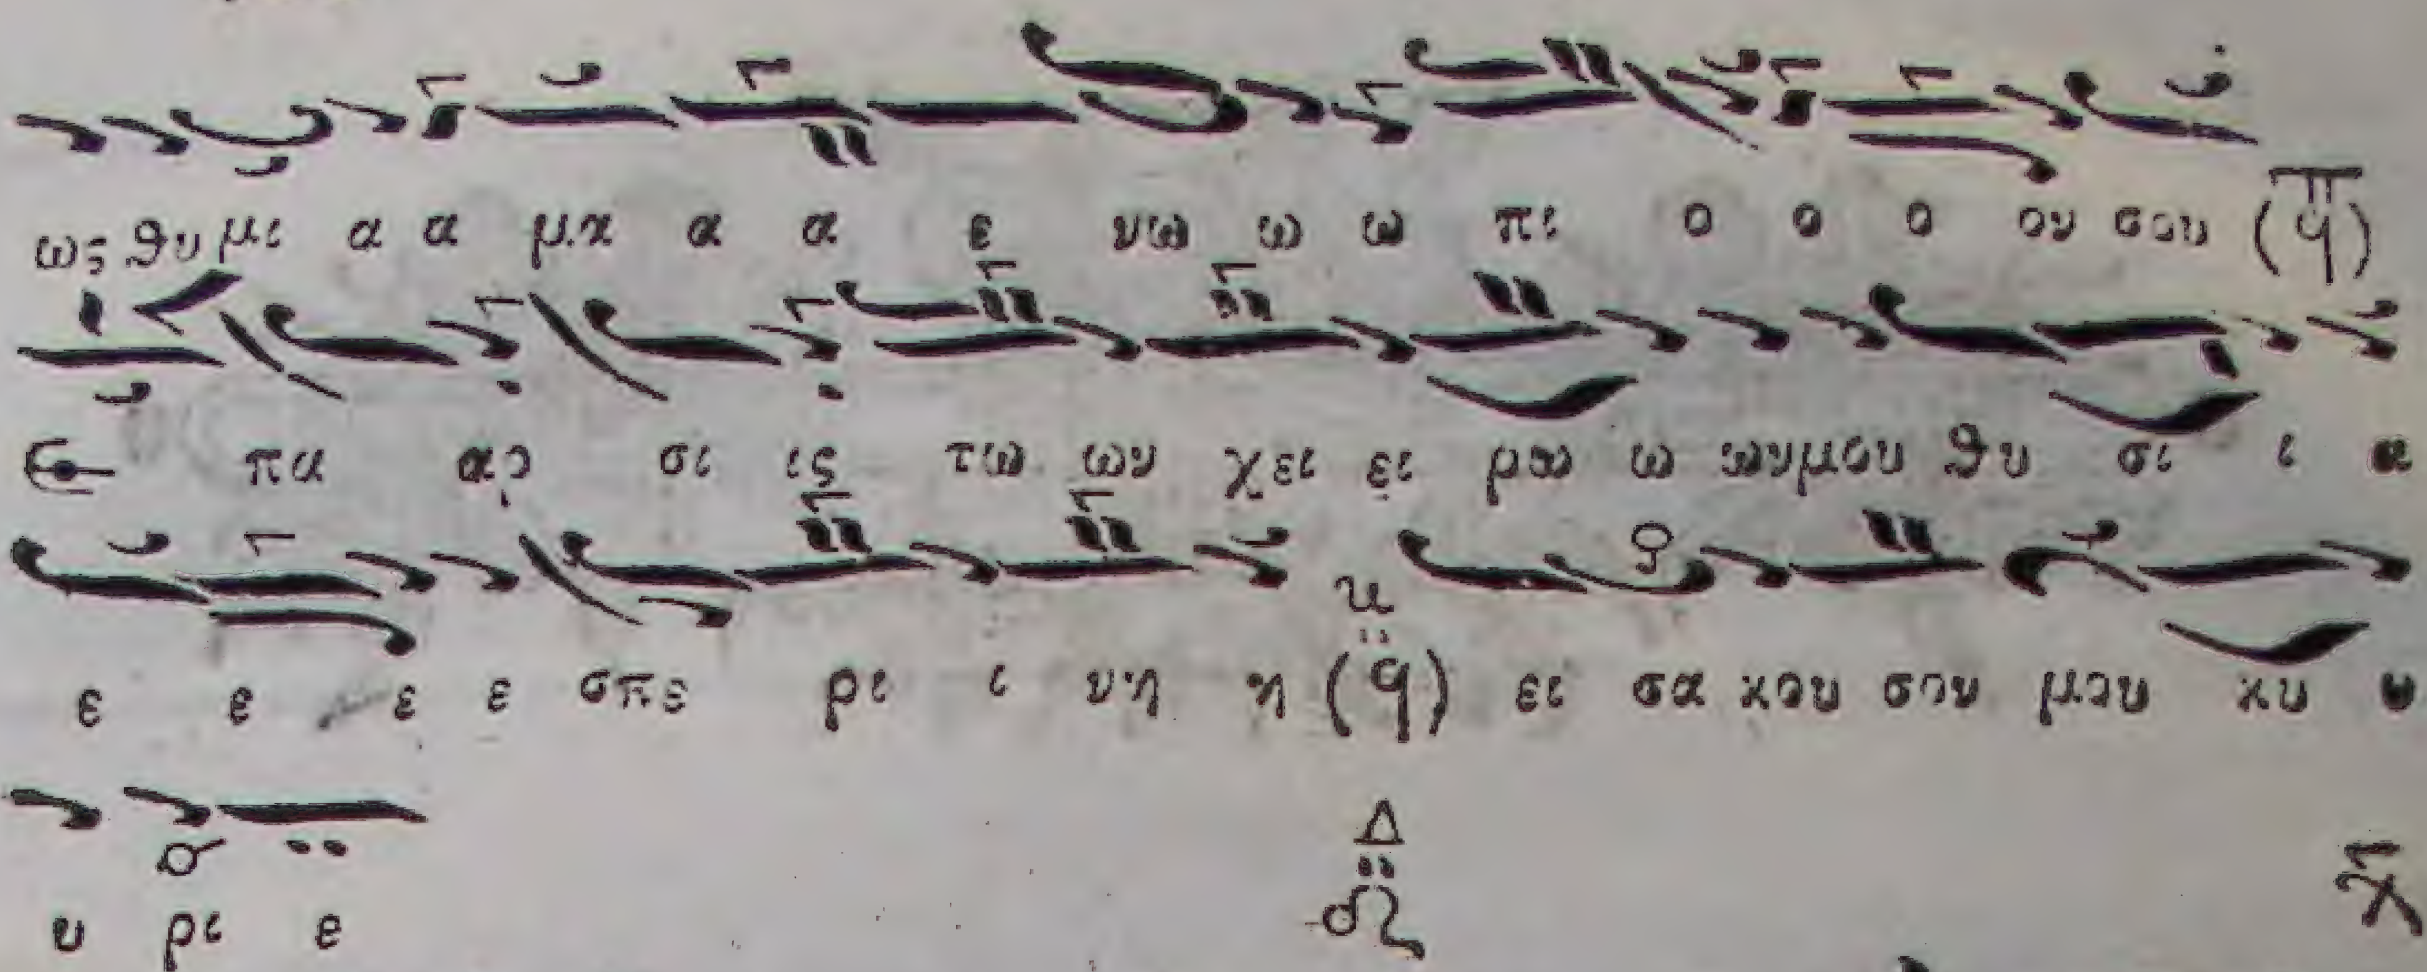 ως θυ μι α α μα α α ε νω ω ω πι ο ο ο ου σου (π q)
πα αρ σι ις τω ων χει ει ρω ω ων μου θυ σι ι α
ε ε ε ε σπε ρι ι νη η (q) ει σα κου σου μου κυ υ
υ ρι ε Δ